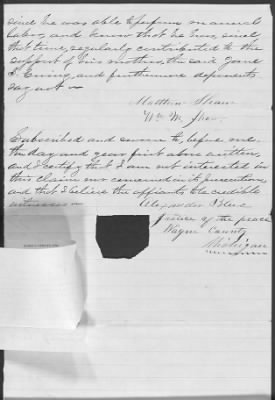 since he was able to perform manual
labor, and know that he has, since
that time, regularly contributed to the
support of his mother, the said Jane
E. Ewing, and furthermore deponents
say not
Matthew Shaw
Wm M.
Subscribed and sworn to, before me
the day and year first above written,
and I certify that I am not interested in
this claim nor concerned in its prosecution
and that I believe the affiants to be credible
witnesses
Alexander Blue
Justice of the peace
Wayne County
Michigan